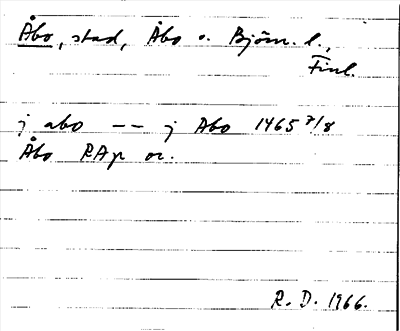 Åbo, stad, Åbo o. Björn. l.,
Finl.
j abo -- j Abo 1465 7/8
Åbo RAp or.
R. D. 1966.